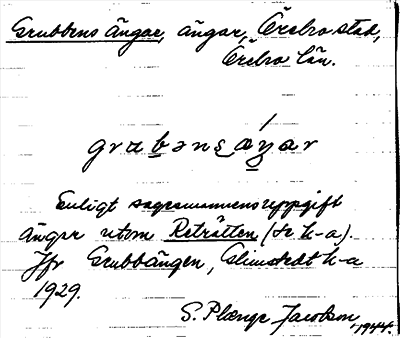 Grubbens Ängar, ängar, Örebro stad,
Örebro län.
Enligt sagesmannens uppgift
ängar utom Reträtten (se h-a).
Jfr Grubbängen, Elimstedt h-a
1929.
S. Plænge Jacobson, 1944.